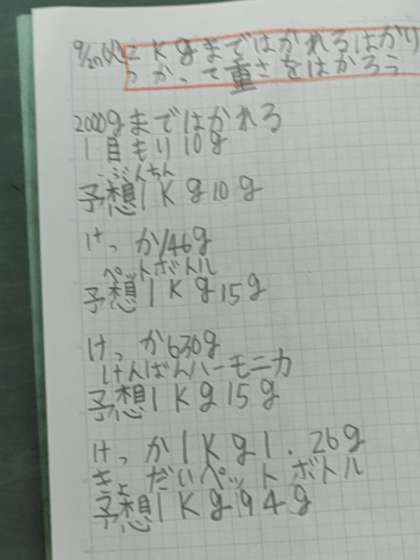 9/27(火)2Kgまではかれるはかり
つかって重さをはかろう
2000gまではかれる
1目もり10g
ぶんちん
予想1Kg10g
けっか146g
ペットボトル
予想1Kg15g
けっか630g
けんばんハーモニカ
予想1Kg15g
けっか1Kg1.26g
きょだいペットボトル
予想1Kg94g